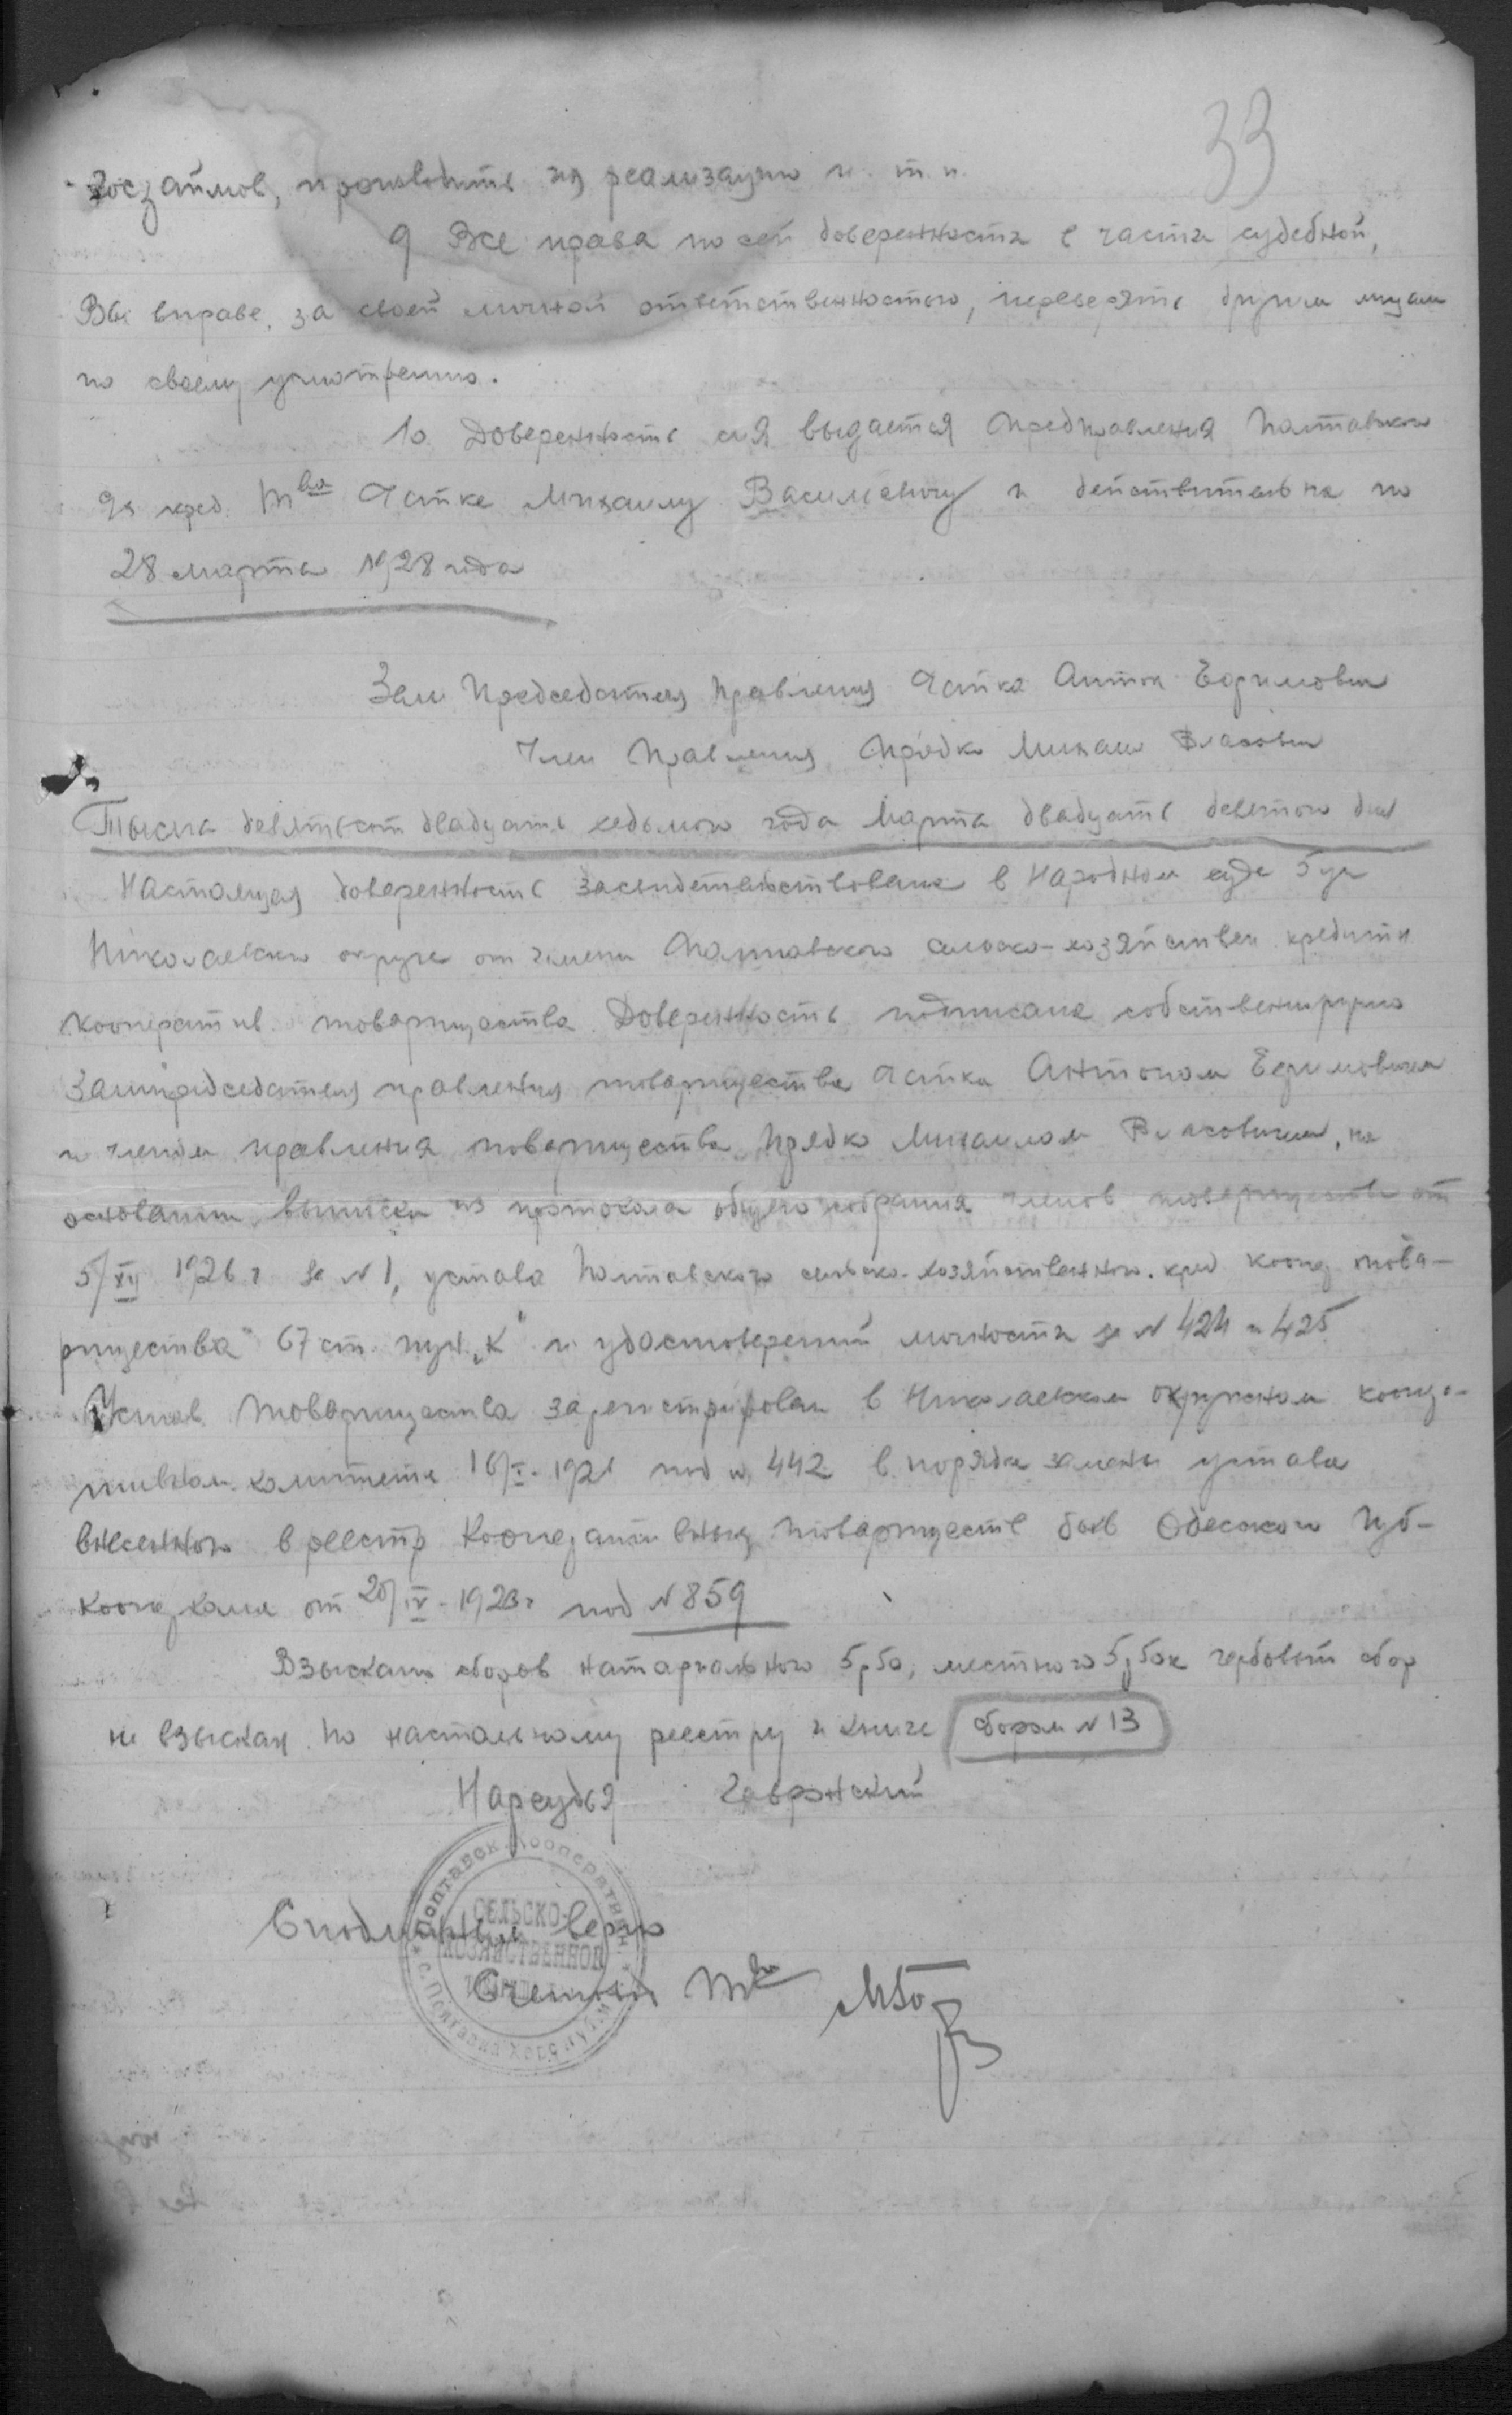 33
Госзаймов, производить их реализацию и т. п.
9 Все права по сей доверенности в части судебной,
Вы вправе, за своей личной ответственностью, переверять другим лицам
по своему усмотрению.
10. Доверенность сия выдается Предправления Полтавского
с/х кред. Т-ва Ястке Михаилу Васильевичу и действительна по
28 марта 1928 года
Зам Председателя Правления Ястка Антон Ефимович
Член Правления Прядко Михаил Власович
Тысяча девятьсот двадцать седьмого года Марта двадцать девятого дня
Настоящая доверенность засвидетельствована в Народном суде 5 уч
Николаевского округа от имени Полтавского сельско-хозяйствен кредитн
кооператив. товарищества. Доверенность подписана собственноручно
Зампредседателя правления товарищества Ястка Антоном Ефимовичем
и членом правления товарищества Прядко Михаилом Власовичем, на
основании выписки из протокола общего собрания членов товарищества от
5/XII 1926 г за N 1, устава Полтавского сельско-хозяйственного. кред кооп това-
рищества 67 ст. пун. „К" и удостоверений личности за N 424 и 425
Устав Товарищества зарегистрирован в Николаевском окружном коопера-
тивном комитете 16/I - 192 под N 442 в порядке замены устава
внесенного в реестр Кооперативных товариществ бывв Одесского Губ-
коопкома от 20/IV - 1923 г под N 859
Взыскано сборов натариального 5 р 50, местного 5 р 50 к гербовый сбор
не взыскан. По настольному реестру и книге сборам N 13
Нарсудья
С подлинным верно
Т-ва
Полтавск. Кооперативн.
СЕЛЬСКО-
ХОЗЯЙСТВЕННОЕ